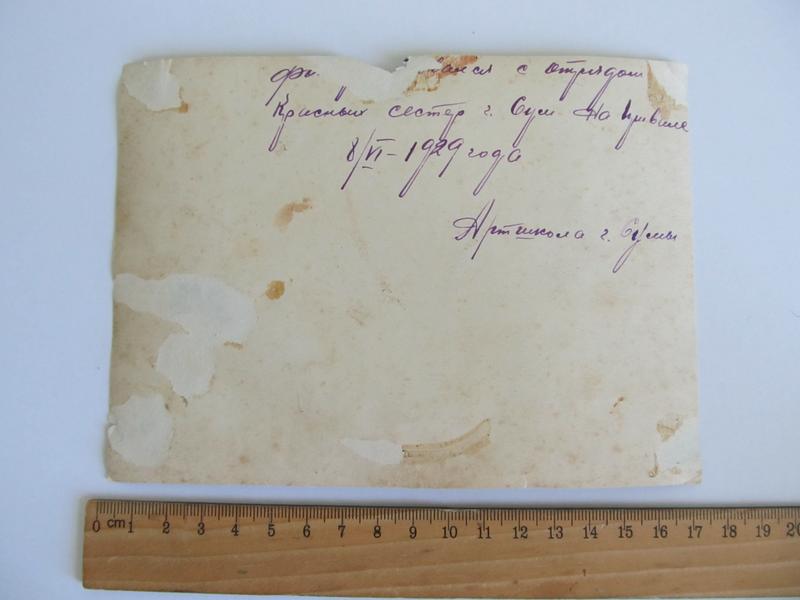 с отрядом
Красных сестер г. Сум на привале
8/VI - 1929 года
Артшкола г. Сумы
0 cm 1 2 3 4 5 6 7 8 9 10 11 12 13 14 15 16 17 18 19 20